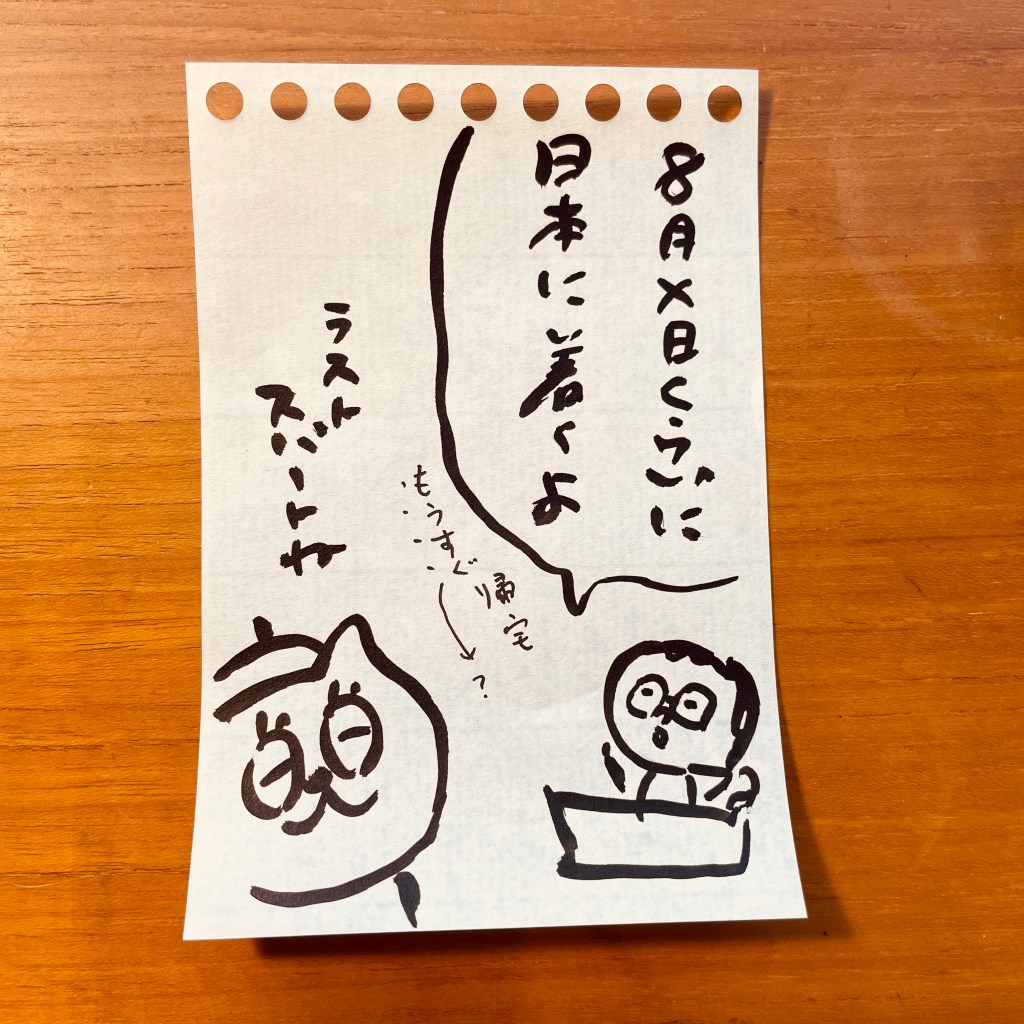 8月×日くらいに
日本に着くよ
もうすぐ
帰宅
?
ラスト
スパートね